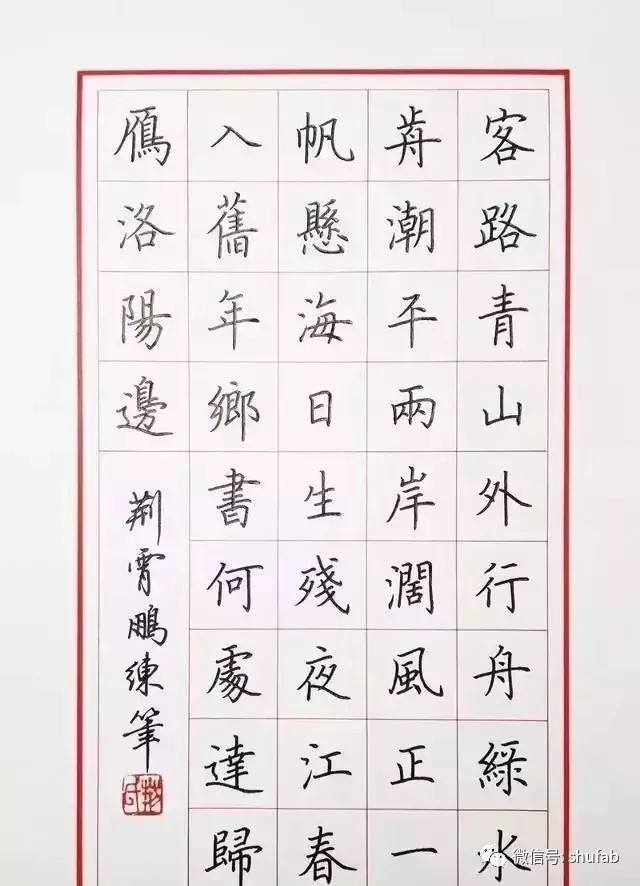 客路青山外行舟綠水
歬潮平兩岸濶風正一
帆懸海日生殘夜江春
入舊年鄉書何處達歸
鴈洛陽邊
荆霄鵬練筆
微信号: shufab